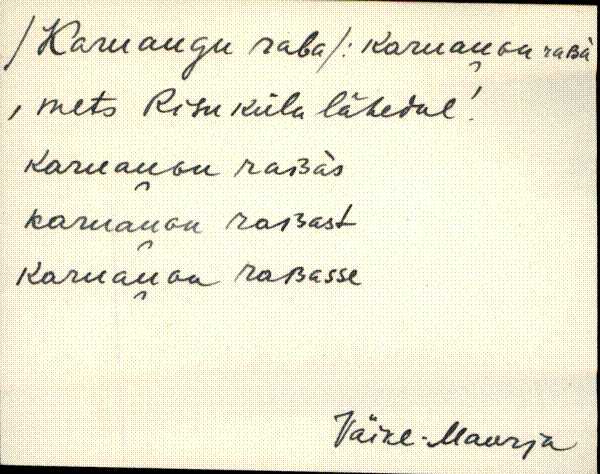 /Karuangu raba/: karuaŋ̑ɢu raʙà
, mets Risu küla lähedal!
karuaŋ̑ɢu raʙàs
karuaŋ̑ɢu raʙast
karuaŋ̑ɢu raʙasse
Väike-Maarja